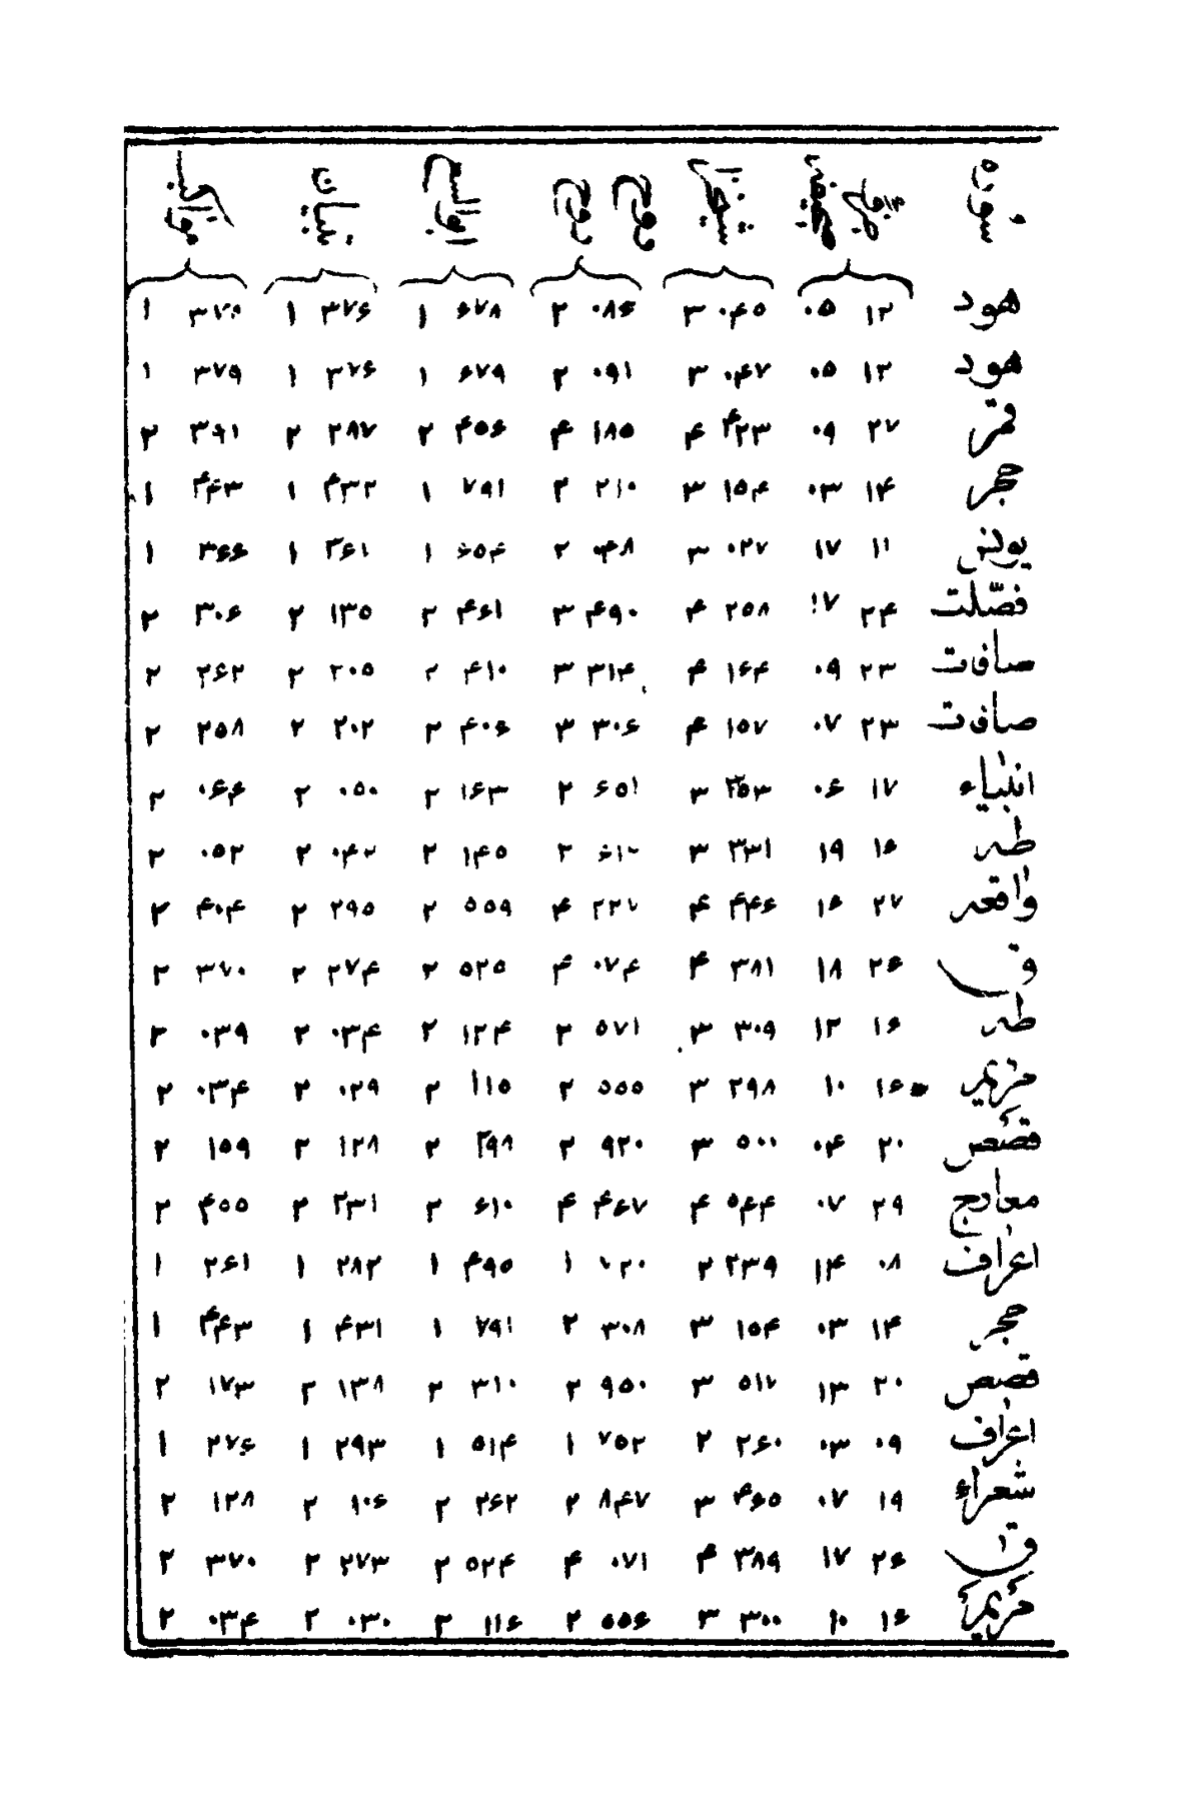 سوره
هود ۱۲ ۰۵ ۰۴۵ ۳ ۰۸۶ ۲ ۶۷۸ ۱ ۳۷۶ ۱ ۱
هود ۱۲ ۰۵ ۰۴۷ ۳ ۰۹۱ ۲ ۶۷۹ ۱ ۳۷۶ ۱ ۳۷۹ ۱
قمر ۲۷ ۰۹ ۴۲۳ ۴ ۱۸۵ ۴ ۴۵۶ ۲ ۲۸۷ ۲ ۲
حجر ۱۴ ۰۳ ۱۵۴ ۳ ۲۱۰ ۲ ۷۹۱ ۱ ۴۳۲ ۱ ۴۴۳ ۱
یونس ۱۱ ۱۷ ۰۲۷ ۳ ۰۴۸ ۲ ۶۵۴ ۱ ۳۶۱ ۱ ۳۶۶ ۱
فصّلت ۲۴ ۱۷ ۲۵۸ ۴ ۴۹۰ ۳ ۴۶۱ ۲ ۱۳۵ ۲ ۳۰۶ ۲
صافات ۲۳ ۰۹ ۱۶۴ ۴ ۳۱۴ ۳ ۴۱۰ ۲ ۲۰۵ ۲ ۲۶۲ ۲
صافات ۲۳ ۰۷ ۱۵۷ ۴ ۳۰۶ ۳ ۴۰۶ ۲ ۲۰۲ ۲ ۲۵۸ ۲
انبیاء ۱۷ ۰۶ ۳ ۶۵۱ ۲ ۱۶۳ ۲ ۰۵۰ ۲ ۰۶۴ ۲
طه ۱۶ ۱۹ ۳۳۱ ۳ ۶۱۲ ۲ ۱۴۵ ۲ ۰۴۲ ۲ ۰۵۲ ۲
واقعه ۲۷ ۱۶ ۴۴۶ ۴ ۲۲۷ ۴ ۵۵۹ ۲ ۲۹۵ ۲ ۴۰۴ ۲
ق ۲۶ ۱۸ ۳۸۱ ۴ ۰۷۴ ۴ ۵۲۵ ۲ ۲۷۴ ۲ ۳۷۰ ۲
طه ۱۶ ۱۲ ۳۰۹ ۳ ۵۷۱ ۲ ۱۲۴ ۲ ۰۳۴ ۲ ۰۳۹ ۲
مریم ۱۶ ۱۰ ۲۹۸ ۳ ۵۵۵ ۲ ۱۱۵ ۲ ۰۲۹ ۲ ۰۳۴ ۲
قصص ۲۰ ۰۴ ۵۰۰ ۳ ۹۲۰ ۲ ۲۹۸ ۲ ۱۲۸ ۲ ۱۵۹ ۲
معارج ۲۹ ۰۷ ۵۴۴ ۴ ۴۶۷ ۴ ۶۱۰ ۲ ۳۳۱ ۲ ۴۵۵ ۲
اعراف ۰۸ ۱۴ ۲۳۹ ۲ ۱ ۴۹۵ ۱ ۲۸۲ ۱ ۲۶۱ ۱
حجر ۱۴ ۰۳ ۱۵۴ ۳ ۳۰۸ ۲ ۷۹۱ ۱ ۴۳۱ ۱ ۴۴۳ ۱
قصص ۲۰ ۱۳ ۵۱۷ ۳ ۹۵۰ ۲ ۳۱۰ ۲ ۱۳۸ ۲ ۱۷۳ ۲
اعراف ۰۹ ۰۳ ۲۶۰ ۲ ۷۵۲ ۱ ۵۱۴ ۱ ۲۹۳ ۱ ۲۷۶ ۱
شعراء ۱۹ ۰۷ ۴۶۵ ۳ ۸۴۷ ۲ ۲۶۲ ۲ ۱۰۶ ۲ ۱۲۸ ۲
ق ۲۶ ۱۷ ۳۸۹ ۴ ۰۷۱ ۴ ۵۲۴ ۲ ۲۷۳ ۲ ۳۷۰ ۲
مریم ۱۶ ۱۰ ۳۰۰ ۳ ۵۵۶ ۲ ۱۱۶ ۲ ۰۳۰ ۲ ۰۳۴ ۲